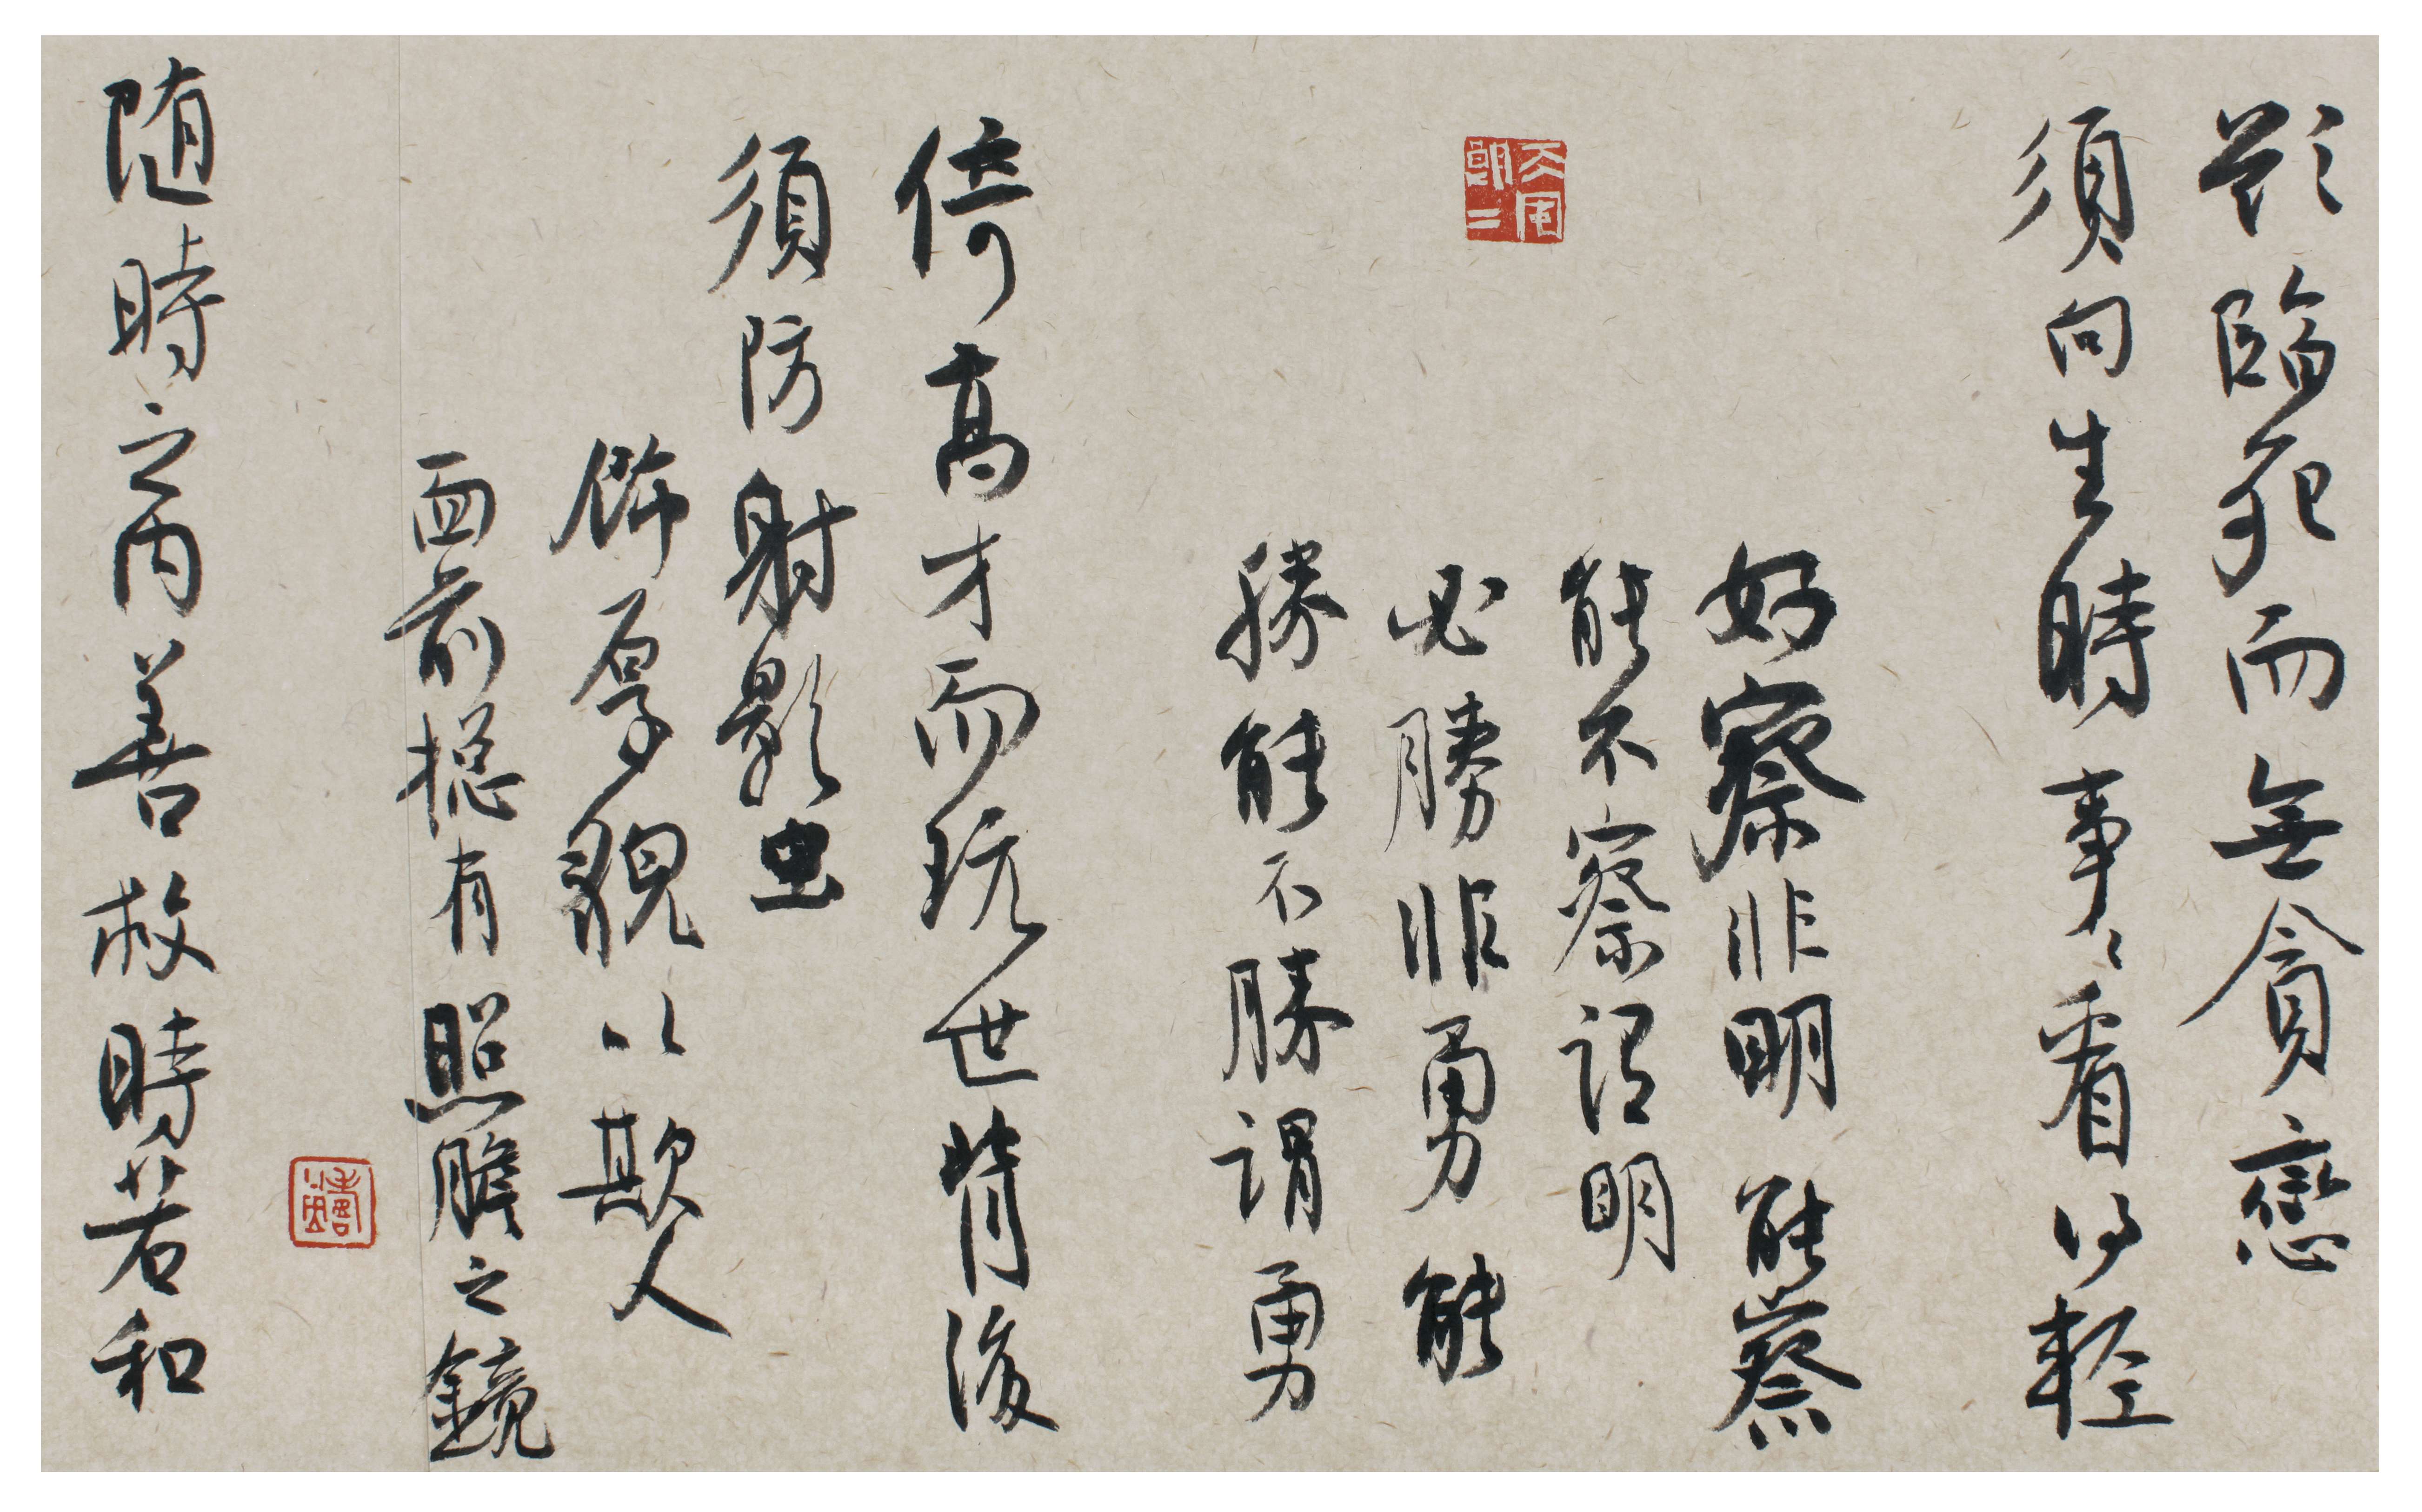 欲臨死而無貪戀
須向生時事〻看得輕
好察非明能察
能不察謂明
必勝非勇能
勝能不勝謂勇
倚高才而玩世背後
須防射影虫
飾厚貌以欺人
面前揔有照膽之鏡
随時之内善救時若和